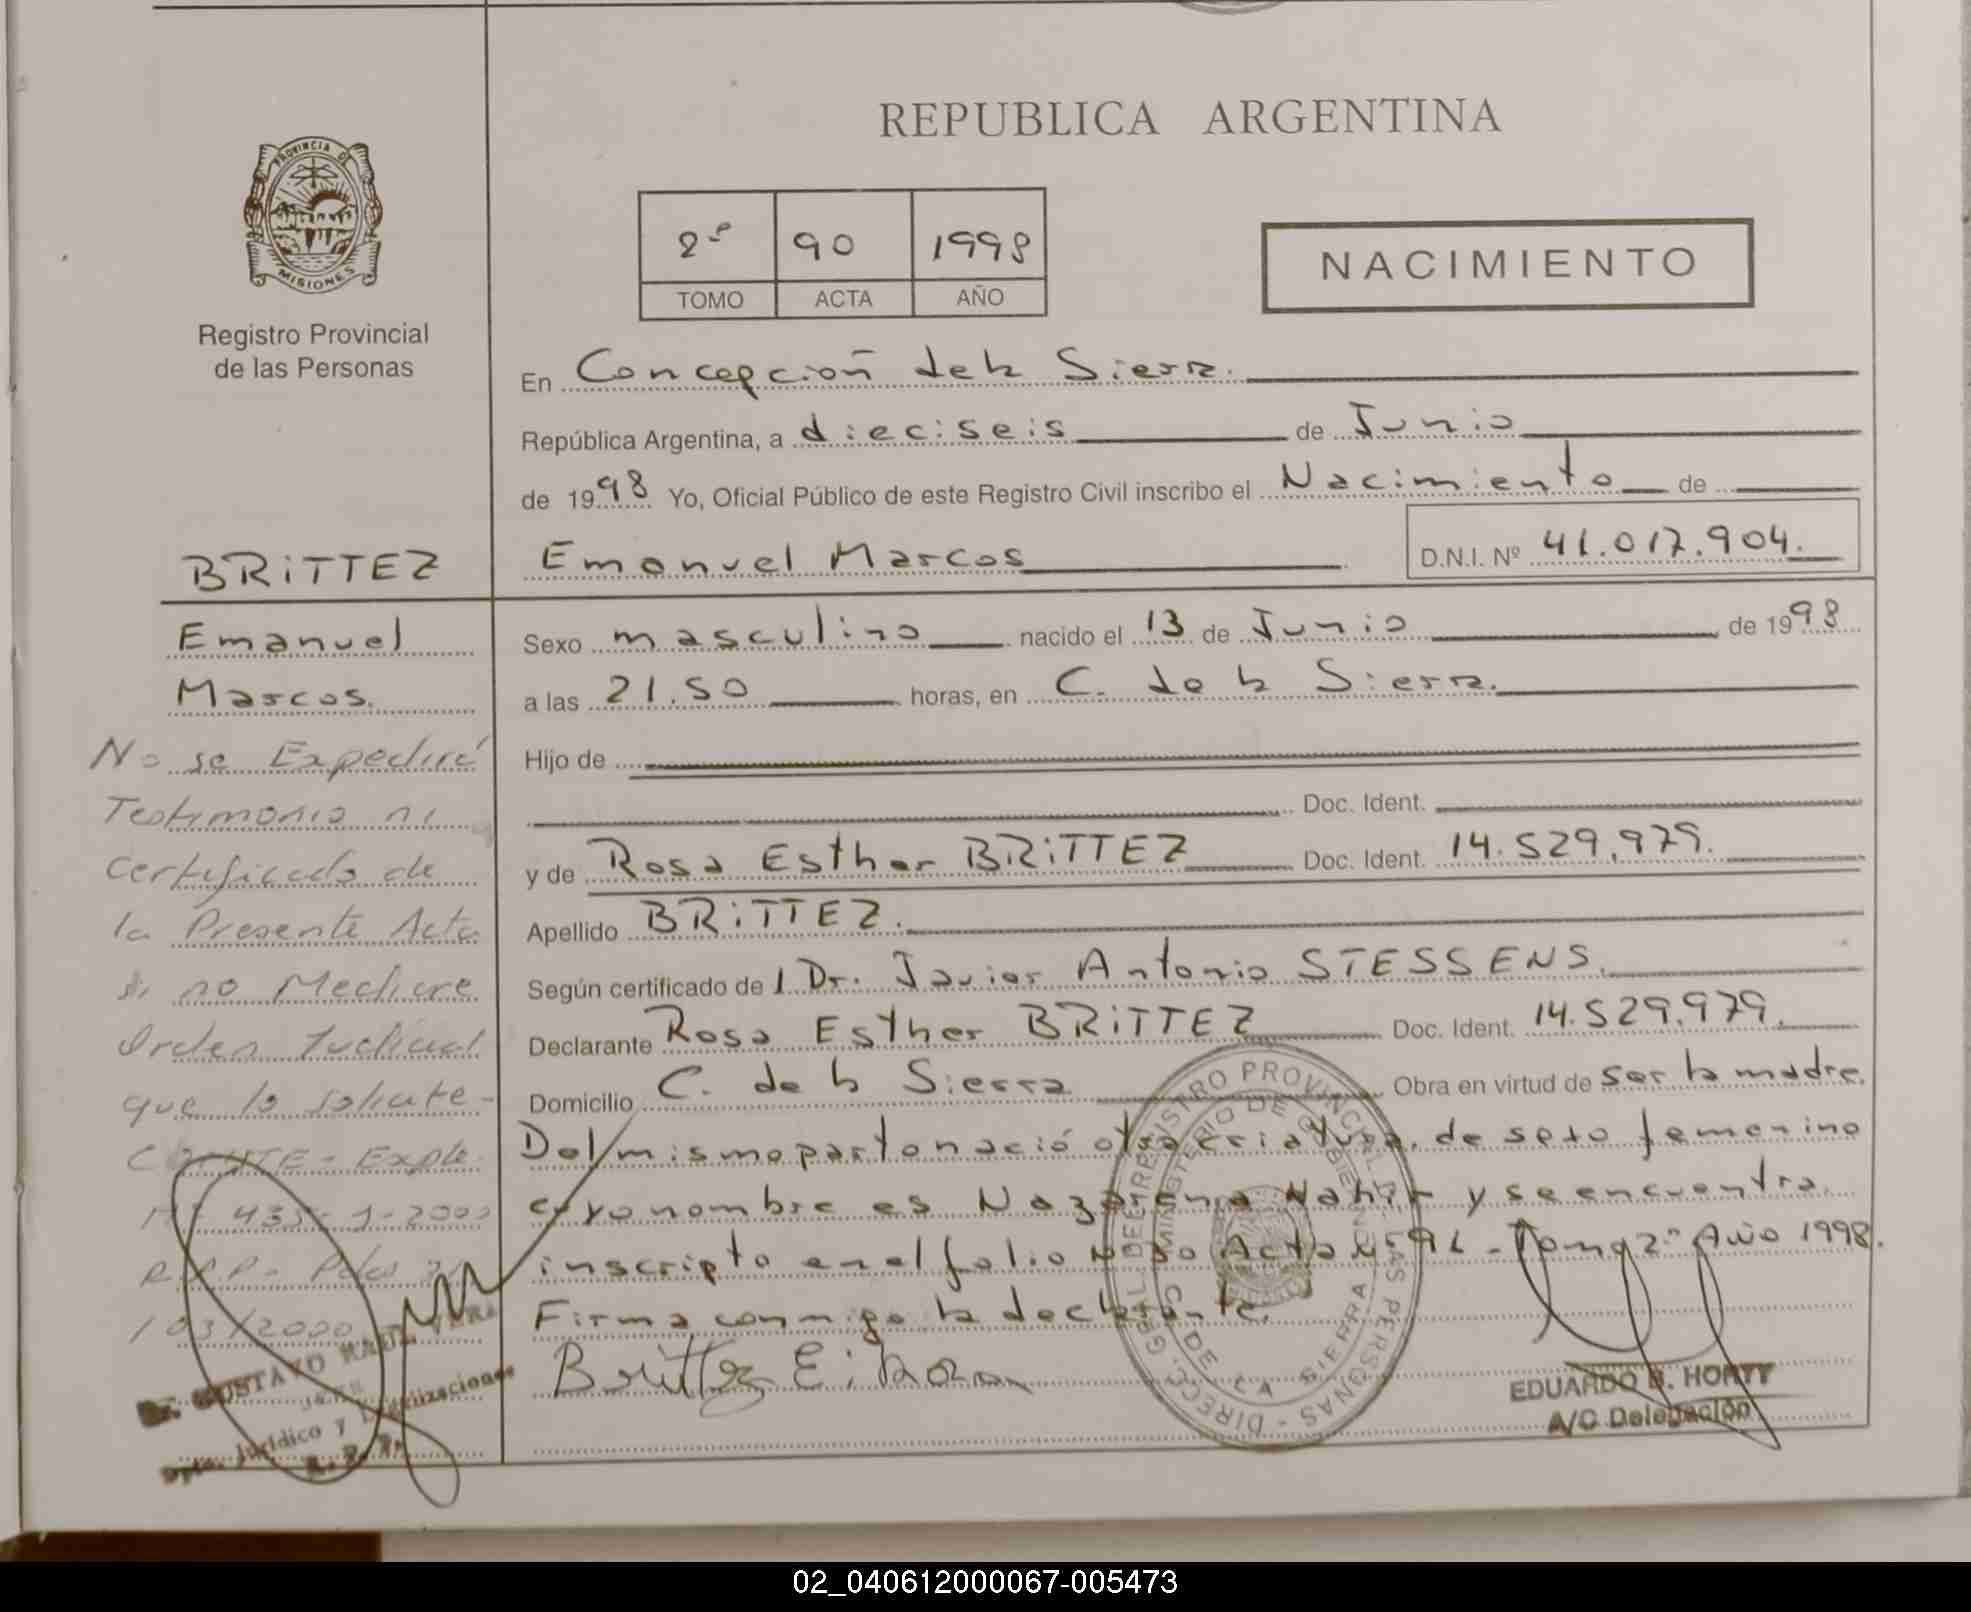 REPUBLICA ARGENTINA
PROVINCIA DE
MISIONES
Registro Provincial
de las Personas
2º 90 1998
TOMO ACTA AÑO
NACIMIENTO
En Concepción de la Sierra.
República Argentina, a dieciseis de Junio
de 1998 Yo, Oficial Público de este Registro Civil inscribo el Nacimiento de
Emanuel Marcos
D.N.I. Nº 41.017.904.
BRiTTEZ
Emanuel
Marcos.
Sexo masculino nacido el 13 de Junio de 1998
a las 21.50 horas, en C. de la Sierra.
Hijo de
Doc. Ident.
y de Rosa Esther BRiTTEZ Doc. Ident. 14.529.979.
Apellido BRiTTEZ.
Según certificado de l Dr. Javier Antonio STESSENS.
Declarante Rosa Esther BRiTTEZ Doc. Ident. 14.529.979.
Domicilio C. de la Sierra Obra en virtud de ser la madre.
Del mismo parto nació otra criatura, de sexo femenino
cuyo nombre es Nazarena Nahir y se encuentra
inscripto en el folio Acta Nº 91 - Tomo 2º Año 1998.
Firma conmigo la declarante.
No se Expedirá
Testimonio ni
Certificado de
la Presente Acta
si no Mediare
Orden Judicial
que lo solicite -
1-2000
R.P.P. - Pdas
/03/2000
Dr. GUSTAVO RAUL VERA
JEFE
Dpto. Jurídico y Legalizaciones
R. P. P.
Brittez
DIRECC. GRAL. DEL REGISTRO PROVINCIAL DE LAS PERSONAS
MINISTERIO DE GOBIERNO
C. DE LA SIERRA
EDUARDO H. HORTY
A/C Delegación
02_040612000067-005473